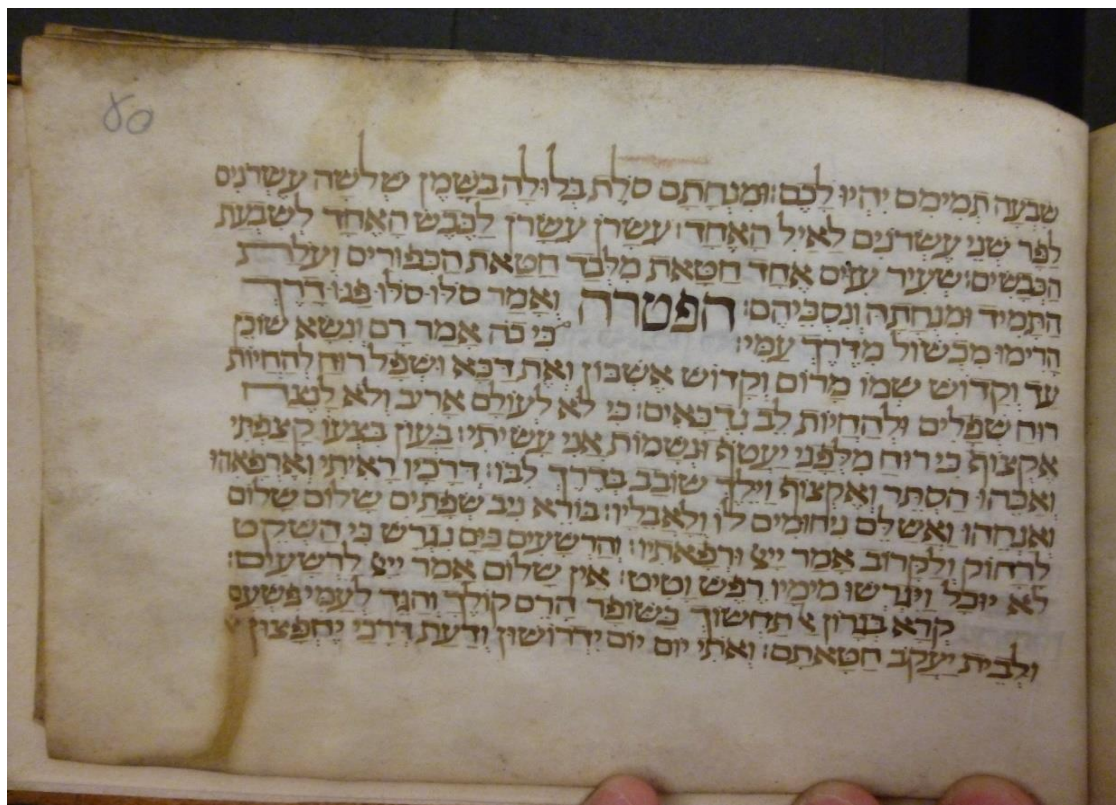 80
שבעה תמימם יהיו לכם: ומנחתם סלת בלולה בשמן שלשה עשרנים
לפר שני עשרנים לאיל האחד: עשרן עשרן לכבש האחד לשבעת
הכבשים: שעיר עזים אחד חטאת מלבד חטאת הכפורים ועלת
התמיד ומנחתה ונסכיהם: הפטרה ואמר סלו סלו פנו דרך
הרימו מכשול מדרך עמי: כי כה אמר רם ונשא שוכן
עד וקדוש שמו מרום וקדוש אשכון ואת דכא ושפל רוח להחיות
רוח שפלים ולהחיות לב נדכאים: כי לא לעולם אריב ולא לנצח
אקצוף כי רוח מלפני יעטוף ונשמות אני עשיתי: בעון בצעו קצפתי
ואכהו הסתר ואקצוף וילך שובב בדרך לבו: דרכיו ראיתי וארפאהו
ואנחהו ואשלם ניחומים לו ולאבליו: בורא ניב שפתים שלום שלום
לרחוק ולקרוב אמר ייי ורפאתיו: והרשעים כים נגרש כי השקט
לא יוכל ויגרשו מימיו רפש וטיט: אין שלום אמר ייי לרשעים:
קרא בגרון תחשוך כשופר הרם קולך והגד לעמי פשעם
ולבית יעקב חטאתם: ואתי יום יום ידרושון ודעת דרכי יחפצון